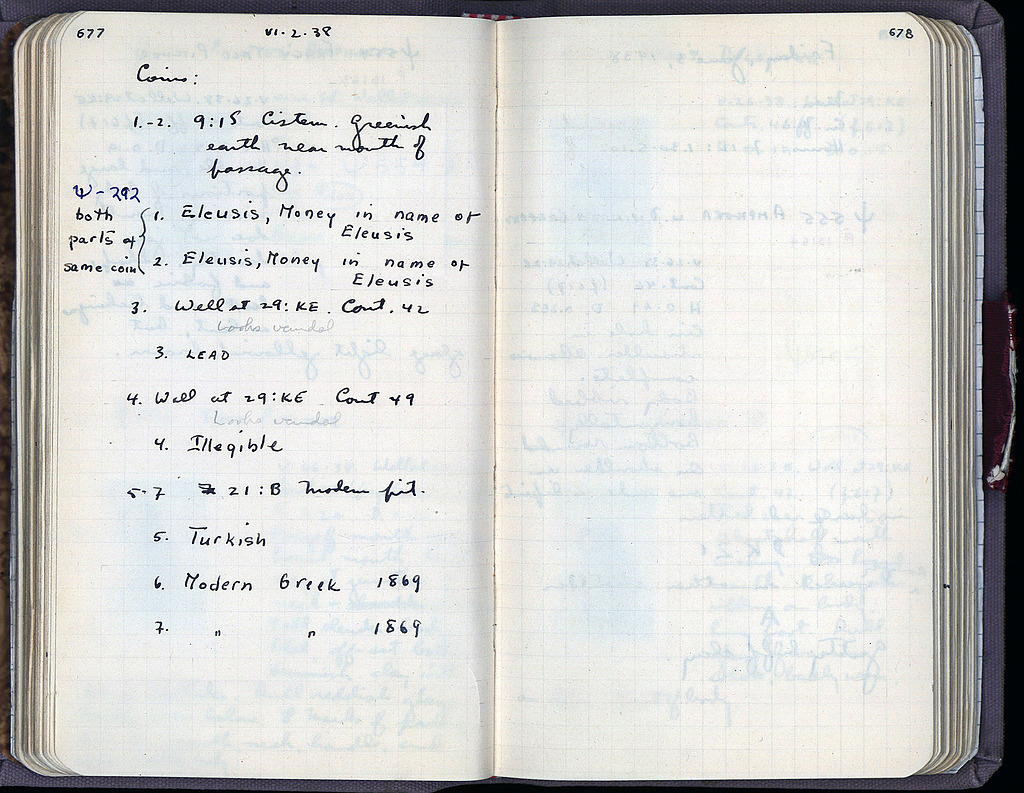 677
VI-2-38
Coins:
1.-2. 9:15 Cistern. Greenish
earth near mouth of
passage.
Ψ-292
both parts of same coin
1. Eleusis, Money in name of
Eleusis
2. Eleusis, Money in name of
Eleusis
3. Well at 29:KE. Cont. 42
Looks vandal
3. LEAD
4. Well at 29:KE Cont 49
Looks vandal
4. Illegible
5-7 21:B Modern pit.
5. Turkish
6. Modern Greek 1869
7. " " 1869
678